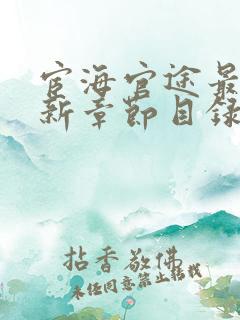 宦海官途最
新章節目錄
拈香敬佛
未经同意禁止转载